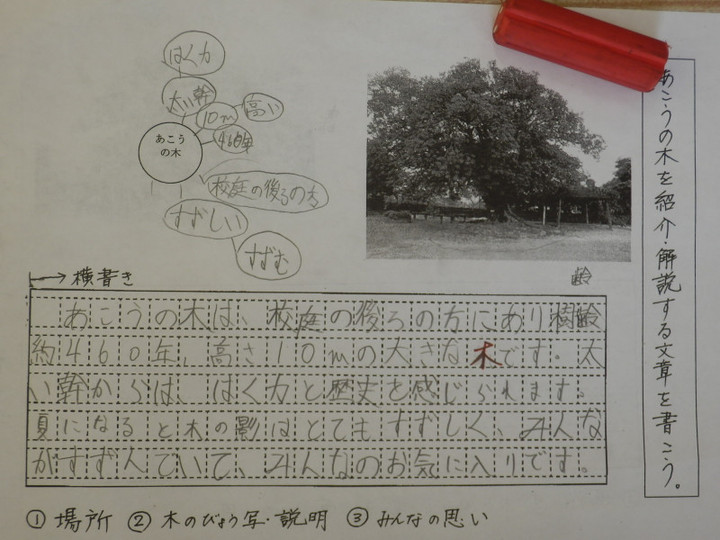 あこうの木を紹介・解説する文章を書こう。
あこう
の木
はく力
太い幹
10m
高い
460年
校庭の後ろの方
すずしい
すずむ
横書き
齢
あこうの木は、校庭の後ろの方にあり樹齢
約460年、高さ10mの大きな木です。太
い幹からは、はく力と歴史を感じられます。
夏になると木の影はとてもすずしく、みんな
がすずんでいて、みんなのお気に入りです。
① 場所 ② 木のびょう写・説明 ③ みんなの思い